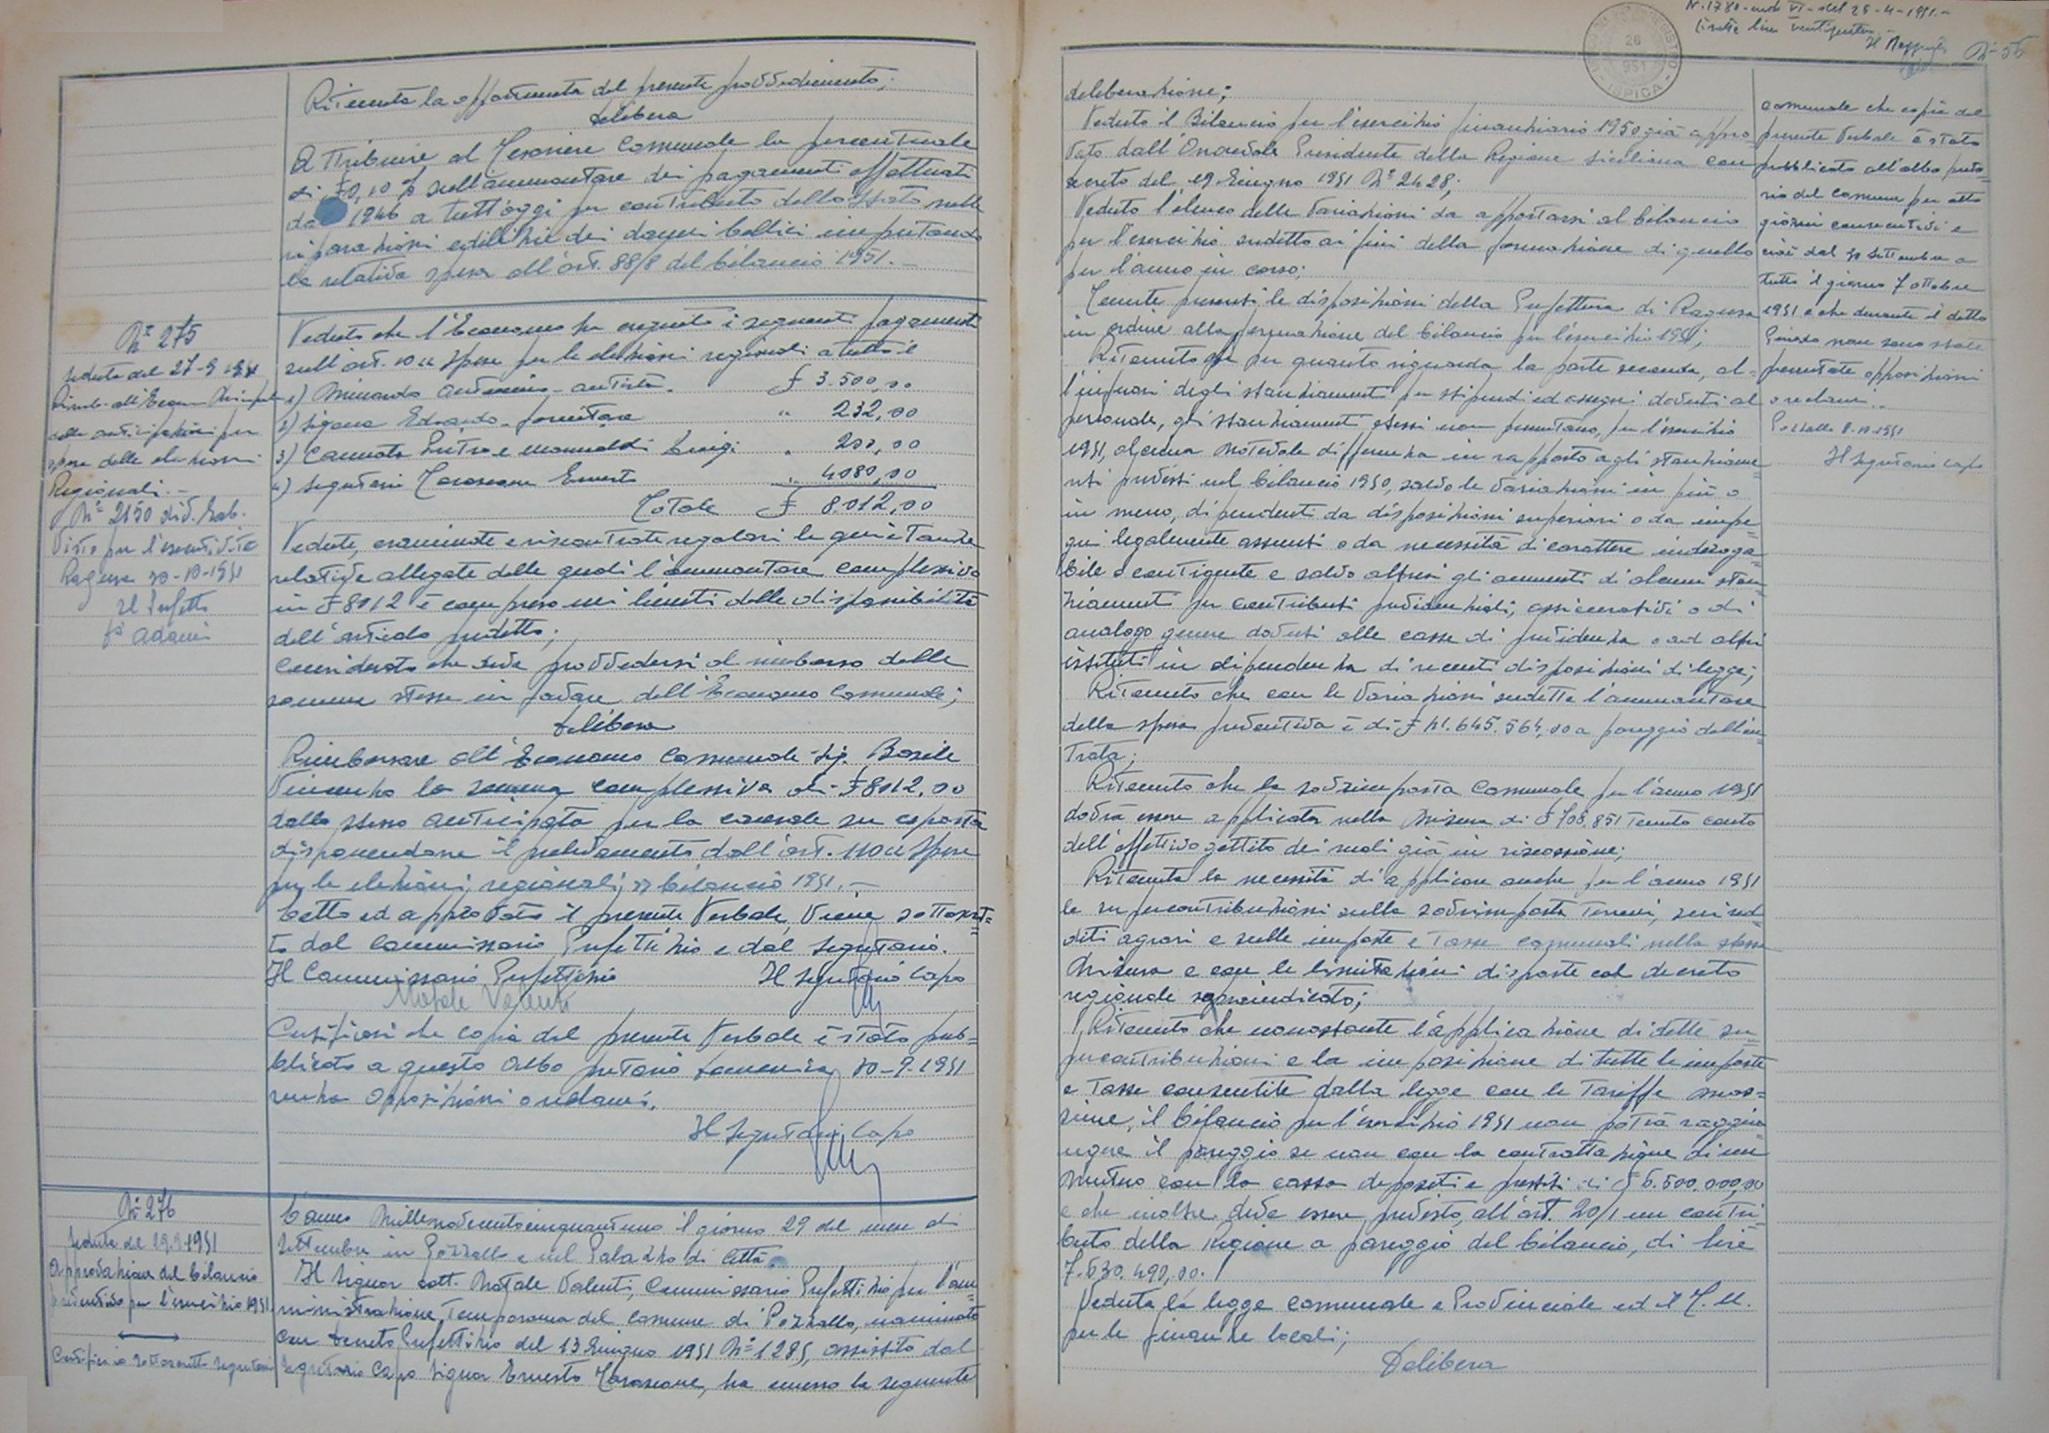 Ritenuta la opportunità del presente provvedimento;
delibera
Attribuire al Tesoriere Comunale la percentuale
di £ 0,10 % sull'ammontare dei pagamenti effettuati
dal 1946 a tutt'oggi per contributo dello Stato nelle
riparazioni edilizie dei danni bellici imputando
la relativa spesa all'art. 88/8 del bilancio 1951. -
N° 275
Seduta del 27-9-1951
Rimb. all'Econ.
delle anticipazioni per
spese delle elezioni
Regionali. -
N° 2150 div. Gab.
Visto per l'esecutività
Ragusa 20-10-1951
Il Prefetto
f° Adami
Veduto che l'Economo ha eseguito i seguenti pagamenti
sull'art. 110 cc spese per le elezioni regionali a tutto il
1) Minardo Antonino - autista. £ 3.500,00
2) Sigona Edoardo - fornitore " 232,00
3) Cannata Pietro e Monnaldi Luigi " 200,00
4) Segretari Tarascone Ernesto " 4080,00
Totale £ 8.012,00
Vedute, esaminate e riscontrate regolari le quietanze
relative allegate delle quali l'ammontare complessivo
in £ 8012 è compreso nei limiti delle disponibilità
dell'articolo predetto;
Considerato che deve provvedersi al rimborso delle
somme stesse in favore dell'Economo Comunale;
delibera
Rimborsare all'Economo Comunale Sig. Basile
Vincenzo la somma complessiva di £ 8012,00
dallo stesso anticipata per la causale su esposta
disponendone il prelevamento dall'art. 110 cc spese
per le elezioni regionali, bilancio 1951. -
Letto ed approvato il presente Verbale, viene sottoscrit=
to dal Commissario Prefettizio e dal Segretario.
Il Commissario Prefettizio Il Segretario Capo
Natale Valenti
Certificasi che copia del presente Verbale è stato pub=
blicato a questo Albo pretorio domenica 30-9-1951
senza opposizioni o reclami.
Il Segretario Capo
N° 276
Seduta del 29.9.1951
Approvazione del bilancio
preventivo per l'esercizio 1951
Certifico io sottoscritto Segretario
L'anno Millenovecentocinquantuno il giorno 29 del mese di
Settembre in Pozzallo e nel Palazzo di Città.
Il Signor Dott. Natale Valenti, Commissario Prefettizio per l'am=
ministrazione Temporanea del Comune di Pozzallo, nominato
con decreto Prefettizio del 13 Giugno 1951 N° 1285, assistito dal
Segretario Capo Signor Ernesto Tarascone, ha emesso la seguente
N. 1780 - mod VI - del 28-4-1951. -
N° 55
26
951
ISPICA
deliberazione;
Veduto il Bilancio per l'esercizio finanziario 1950 già appro
vato dall'Onorevole Presidente della Regione siciliana con
decreto del 19 Giugno 1951 N° 2428;
Veduto l'elenco delle variazioni da apportarsi al bilancio
per l'esercizio sudetto ai fini della formazione di quello
per l'anno in corso;
Tenute presenti le disposizioni della Prefettura di Ragusa
in ordine alla formazione del bilancio per l'esercizio 1951;
Ritenuto che per quanto riguarda la parte seconda, al=
l'infuori degli stanziamenti per stipendi ed assegni dovuti al
personale, gli stanziamenti stessi non presentano, per l'esercizio
1951, alcuna notevole differenza in rapporto agli stanziame=
nti previsti nel bilancio 1950, salvo le variazioni in più o
in meno, dipendenti da disposizioni superiori o da impe
gni legalmente assunti o da necessità di carattere inderoga
bile o contigente e salvo altresì gli aumenti di alcuni stan
ziamenti per contributi previdenziali, assicurativi o di
analogo genere dovuti alle casse di previdenza o ad altri
istituti in dipendenza di recenti disposizioni di legge;
Ritenuto che con le variazioni sudette l'ammontare
della spesa preventiva è di £ 41.645.564,00 a pareggio dell'en
trata;
Ritenuto che la sovrimposta Comunale per l'anno 1951
dovrà essere applicata nella misura di £ 708.851 tenuto conto
dell'effettivo gettito dei ruoli già in riscossione;
Ritenuta la necessità di applicare anche per l'anno 1951
le supercontribuzioni sulla sovrimposta terreni, sui red
diti agrari e sulle imposte e tasse comunali nella stessa
misura e con le limitazioni disposte col decreto
regionale sopraindicato;
Ritenuto che nonostante l'applicazione di dette su
percontribuzioni e la imposizione di tutte le imposte
e tasse consentite dalla legge con le tariffe mas=
sime, il bilancio per l'esercizio 1951 non potrà raggiu
ngere il pareggio se non con la contrattazione di un
mutuo con la cassa depositi e prestiti di £ 6.500.000,00
e che inoltre deve essere previsto, all'art. 20/1 un contri
buto della Regione a pareggio del bilancio, di lire
7.630.490,00.
Veduta la legge comunale e Provinciale ed il T. U.
per le finanze locali;
Delibera
comunale che copia del
presente Verbale è stato
pubblicato all'albo preto=
rio del comune per otto
giorni consecutivi e
cioè dal 30 Settembre a
tutto il giorno 7 ottobre
1951 e che durante il detto
periodo non sono state
presentate opposizioni
o reclami. -
Pozzallo 8.10.1951
Il Segretario Capo